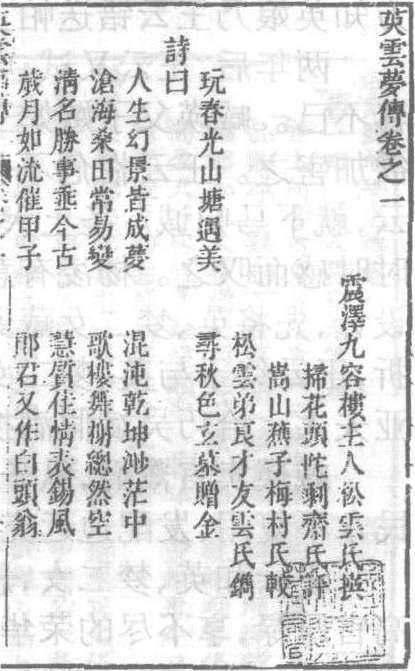 英雲夢傳卷之一
震澤九容樓主人松雲氏撰
掃花頭陀剩齋氏評
嵩山蕉子梅村氏較
松雲弟良才友雲氏鐫
玩春光山塘遇美 尋秋色玄墓贈金
詩曰
人生幻景皆成夢 混沌乾坤渺茫中
滄海桑田常易變 歌樓舞榭總然空
清名勝事垂今古 慧質佳情表錫風
歲月如流催甲子 郎君又作白頭翁